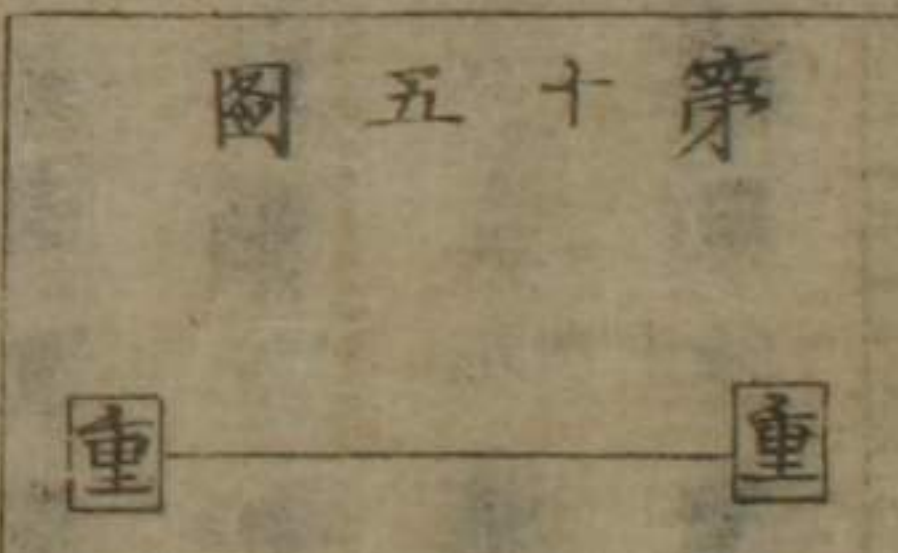 第十五圖
重 重